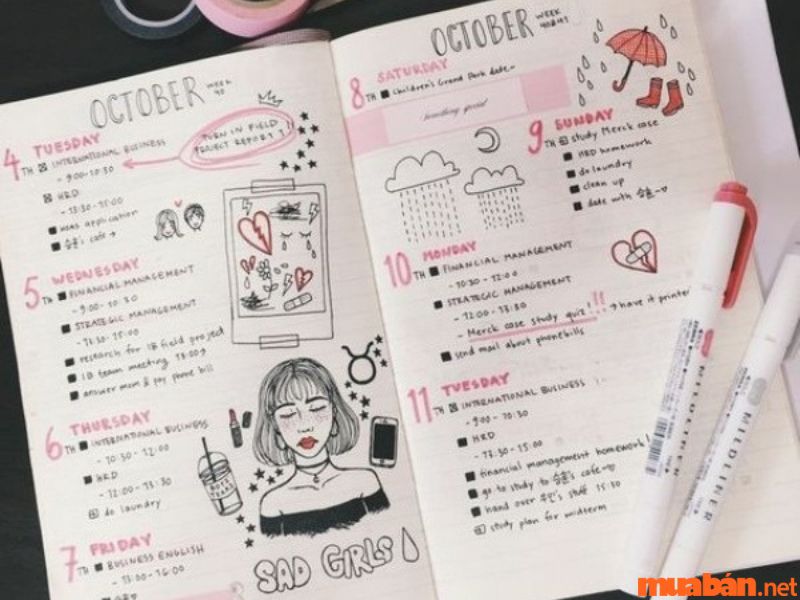 OCTOBER WEEK 40
4TH TUESDAY
INTERNATIONAL BUSINESS
- 9:00 - 10:30
HRD
- 13:30 - 15:00
application
TURN IN FIELD
PROJECT REPORT !!
5TH WEDNESDAY
FINANCIAL MANAGEMENT
- 9:00 - 10:30
STRATEGIC MANAGEMENT
- 13:30 - 15:00
research for IB field project
IB team meeting
answer mom & pay phone bill
6TH THURSDAY
INTERNATIONAL BUSINESS
- 10:30 - 12:00
HRD
- 12:00 - 13:30
do laundry
BOYS TEARS
7TH FRIDAY
BUSINESS ENGLISH
- 13:00 - 16:00
SAD GIRLS
OCTOBER WEEK
8TH SATURDAY
Children's Grand Park date~
Something special
9TH SUNDAY
study Merck case
HRD homework
do laundry
clean up
date with
10TH MONDAY
FINANCIAL MANAGEMENT
- 10:30 - 12:00
STRATEGIC MANAGEMENT
- 12:00 - 13:30
- Merck case study quiz!!! → have it printed
send mail about phonebills
11TH TUESDAY
INTERNATIONAL BUSINESS
- 9:00 - 10:30
HRD
- 13:30 - 15:00
financial management homework!
go to study to 승훈's cafe~
hand over 15:30
study plan for midterm
MILDLINER
MILDLINER
muaban.net